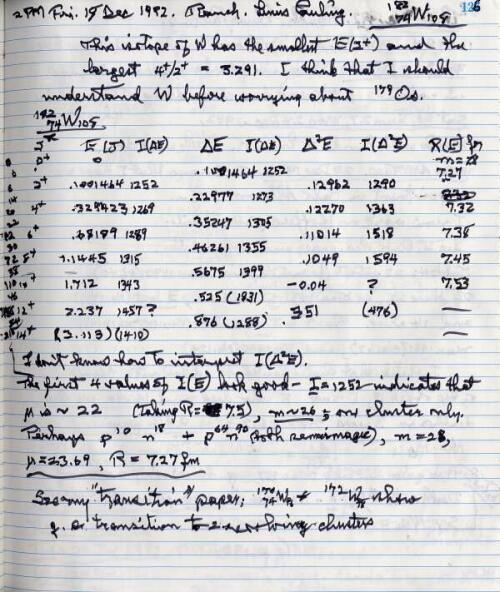 2 PM Fri. 18 Dec 1992. Ranch. Linus Pauling. 182 74 W 108 126
This isotope of W has the smallest E(2+) and the
largest 4+/2+ = 3.291. I think that I should
understand W before worrying about Os.
182 74 W 108
E(J) I(ΔE) ΔE I(ΔE) Δ²E I(Δ²E) R(E) fm
0+ 0 m=28
.1001464 1252 7.27
2+ .1001464 1252 .12962 1290
.22977 1273 7.32
4+ .329423 1269 .12270 1363
.35247 1305 7.38
6+ .68189 1289 .11014 1518
.46261 1355 7.45
8+ 1.1445 1315 .1049 1594
.5675 1399 7.53
10+ 1.712 1343 -0.04 ?
.525 (1831)
12+ 2.237 1457? .351 (476)
.876 (1288)
14+ (3.113) (1410)
I don't know how to interpret I(Δ²E).
The first 4 values of I(E) look good - I=1252 indicates that
μ is ~ 22 (Taking R= 7.5), m~26 ; one cluster only.
Perhaps p10 n18 + p64 n90 (both semimagic), m=28,
μ=23.69, R = 7.27 fm
See my "transition" paper; 74 W & 172 W show
transition to 2 revolving clusters